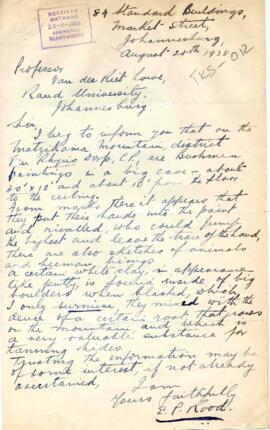 RECEIVED
ONTVANG
22-8-1938
ANSWERED
BEANTWOORD
84 Standard Buildings,
Market Street,
Johannesburg,
August 20th 1938
Professor
Van der Riet Lowe,
Raud University,
Johannesburg.
Sir,
I beg to inform you that on the
Matsikama Mountain, district
Van Rhyns Dorp, C.P., are Bushman
paintings in a big cave - about
20' x 12' and about 10' from the floor
to the ceiling.
From marks there it appears that
they put their hands into the paint
and rivalled, who could jump
the highest and leave the trace of the hand,
There are also sketches of animals
and human beings.
A certain white clay, in appearance
like putty, is found inside of big
boulders when blasted, which
I only surmise they mixed with the
juice of a certain root that grows
on the mountain, and which is
a very valuable substance for
tanning hides.
Trusting the information may be
of some interest, if not already
ascertained,
I am
Yours faithfully
E. P. Rood.